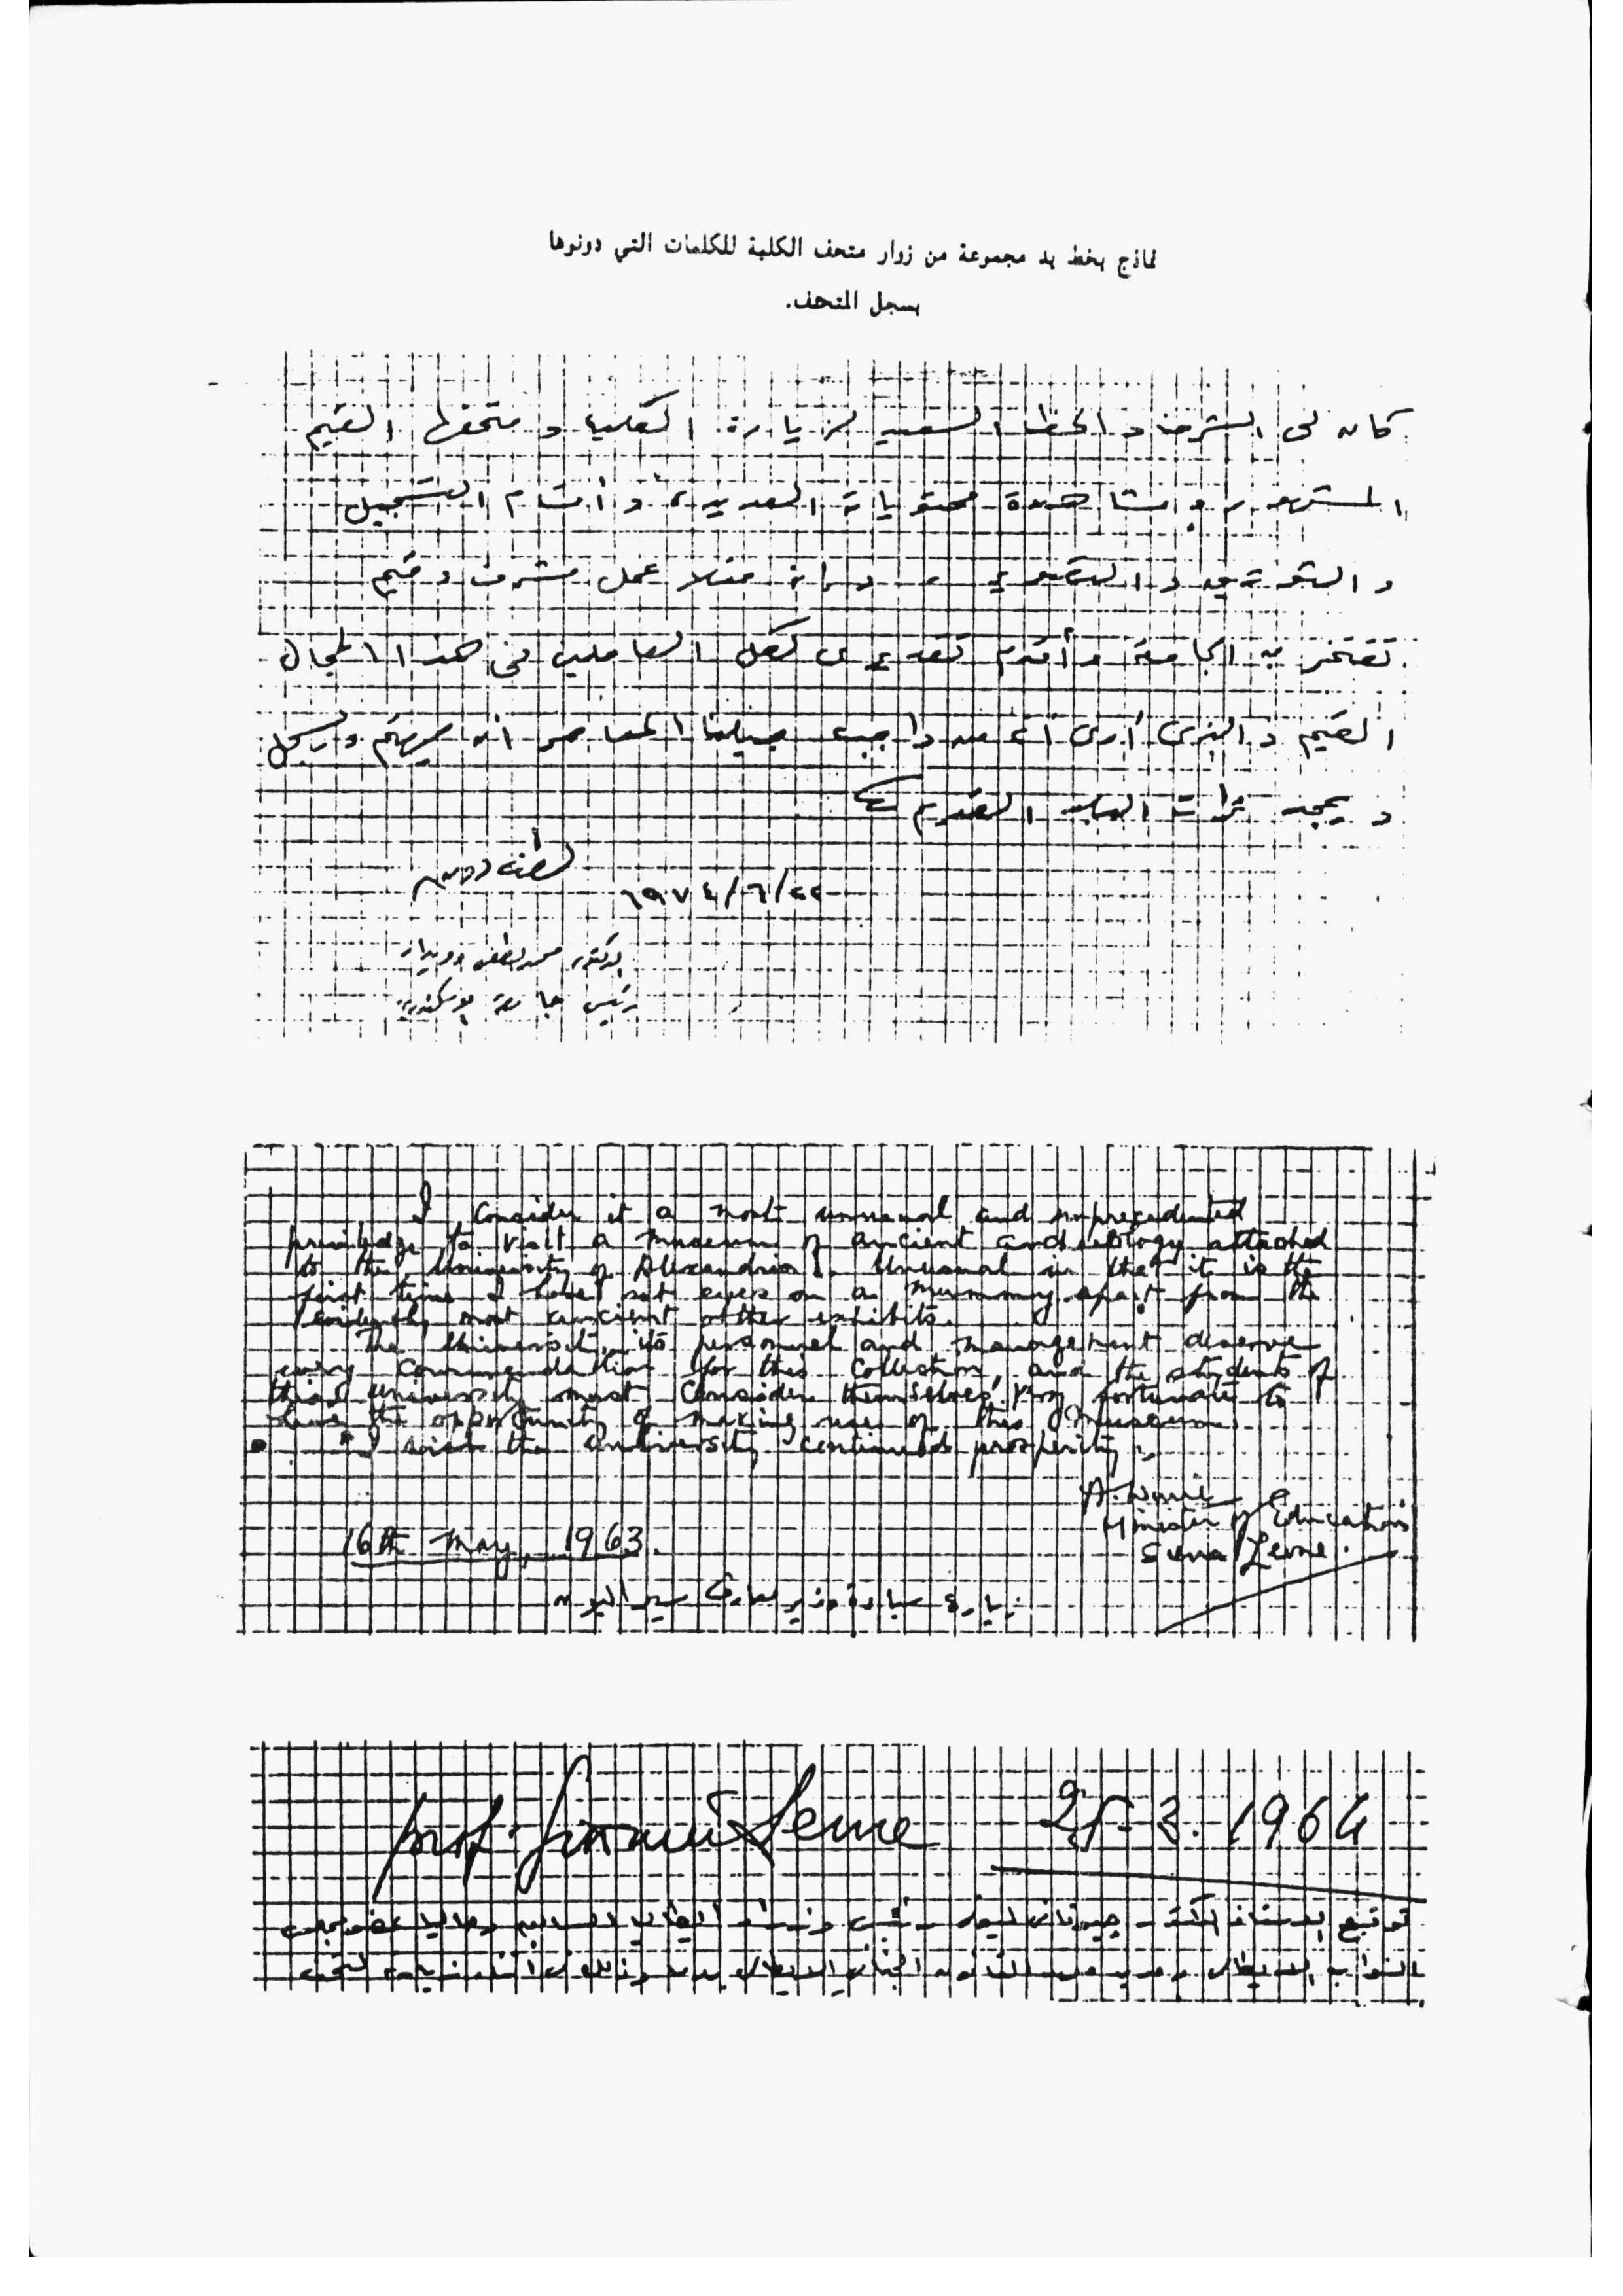 نماذج بخط يد مجموعة من زوار متحف الكلية للكلمات التي دونوها
بسجل المتحف.
كان لى الشرف والحظ السعيد لزيارة الكلية ومتحفها القيم
المشهور ومشاهدة محتوياته العديدة وأقسام التسجيل
والتوثيق والتصوير، وانه فعلا عمل مشرف وقيم
تفتخر به الجامعة وأقدم تقديرى لكل العاملين فى هذا المجال
القيم والذى أرى أنه من واجب جيلنا المعاصر أن يهتم ويسجل
ويمجد تراث البلد القديم
١٩٧٤/٦/٢٢
دكتور محمد لطفى دويدار
رئيس جامعة الاسكندرية
I consider it a most unusual and unprecedented
priviledge to visit a museum of ancient archaeology attached
to the University of Alexandria. Unusual in that it is the
first time I have set eyes on a mummy apart from the
evidently most ancient other exhibits.
The University, its personnel and management deserve
every commendation for this collection, and the students of
this University must consider themselves very fortunate to
have the opportunity of making use of this museum.
I wish the University continued prosperity.
Minister of Education
Sierra Leone.
16th May, 1963.
زيارة سيادة وزير معارف سيراليون
prof. Giovanni Leone 25-3.1964
توقيع الاستاذ الدكتور جيوفانى ليونى رئيس وزراء ايطاليا السابق وحاليا عضو مجلس
النواب الايطالى